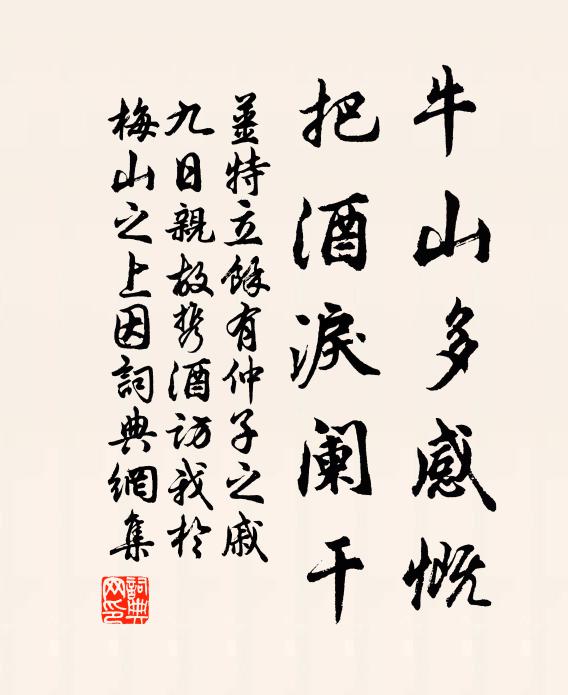 牛山多感慨
把酒淚闌干
薑特立餘有仲子之戚
九日親故携酒訪我於
梅山之上因詞典網集
詞典
网印